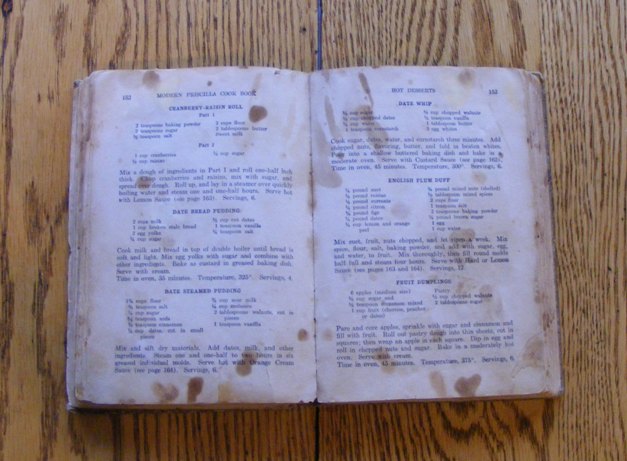 152 MODERN PRISCILLA COOK BOOK
CRANBERRY-RAISIN ROLL
Part 1
2 teaspoons baking powder
2 teaspoons sugar
½ teaspoon salt
2 cups flour
2 tablespoons butter
Sweet milk
Part 2
1 cup cranberries
½ cup raisins
¾ cup sugar
Mix a dough of ingredients in Part 1 and roll one-half inch
thick. Chop cranberries and raisins, mix with sugar, and
spread over dough. Roll up, and lay in a steamer over quickly
boiling water and steam one and one-half hours. Serve hot
with Lemon Sauce (see page 163). Servings, 6.
DATE BREAD PUDDING
2 cups milk
1 cup broken stale bread
2 egg yolks
¼ cup sugar
½ cup cut dates
1 teaspoon vanilla
¼ teaspoon salt
Cook milk and bread in top of double boiler until bread is
soft and light. Mix egg yolks with sugar and combine with
other ingredients. Bake as custard in greased baking dish.
Serve with cream.
Time in oven, 35 minutes. Temperature, 325°. Servings, 4.
DATE STEAMED PUDDING
cups flour
teaspoon salt
cup sugar
teaspoon soda
teaspoon cinnamon
cup dates, cut in small
pieces
cup sour milk
cup molasses
2 tablespoons walnuts, cut in
pieces
1 teaspoon vanilla
Mix and sift dry materials. Add dates, milk, and other
ingredients. Steam one and one-half to two hours in six
greased individual molds. Serve hot with Orange Cream
Sauce (see page 164). Servings, 6.
HOT DESSERTS 153
DATE WHIP
cup sugar
cup chopped dates
cup water
1 teaspoon cornstarch
cup chopped walnuts
teaspoon vanilla
1 tablespoon butter
3 egg whites
Cook sugar, dates, water, and cornstarch three minutes. Add
chopped nuts, flavoring, butter, and fold in beaten whites.
Pour into a shallow buttered baking dish and bake in a
moderate oven. Serve with Custard Sauce (see page 162).
Time in oven, 45 minutes. Temperature, 300°. Servings, 6.
ENGLISH PLUM DUFF
pound suet
pound raisins
pound currants
pound citron
pound figs
pound dates
cup lemon and orange
peel
pound mixed nuts (shelled)
tablespoon mixed spices
3 cups flour
1 teaspoon salt
2 teaspoons baking powder
pound brown sugar
1 egg
1 cup water
Mix suet, fruit, nuts chopped, and let ripen a week. Mix
spice, flour, salt, baking powder, and add with sugar, egg,
and water, to fruit. Mix thoroughly, then fill round molds
half full and steam four hours. Serve with Hard or Lemon
Sauce (see pages 163 and 164). Servings, 12.
FRUIT DUMPLINGS
6 apples (medium size)
cup sugar and
teaspoon cinnamon mixed
1 cup fruit (cherries, peaches
or dates)
Pastry
cup chopped walnuts
1 tablespoon sugar
Pare and core apples, sprinkle with sugar and cinnamon and
fill with fruit. Roll out pastry dough into thin sheets, cut in
squares; then wrap an apple in each square. Dip in egg and
roll in chopped nuts and sugar. Bake in a moderately hot
oven. Serve with cream.
Time in oven, 45 minutes. Temperature, 375°. Servings, 6.